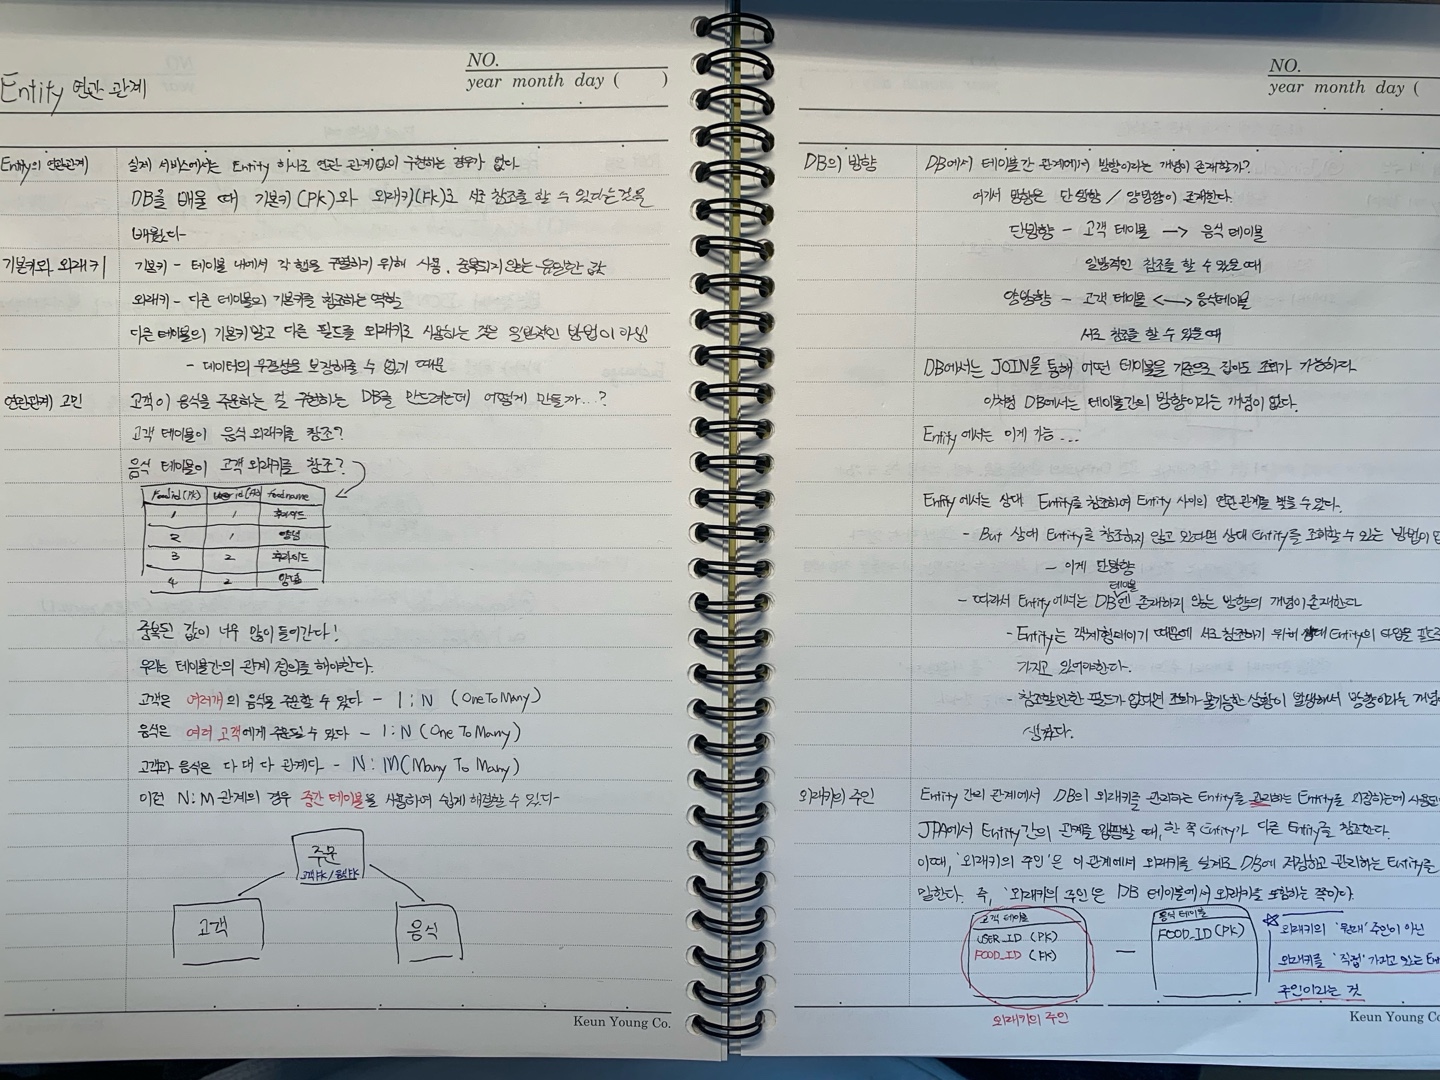 NO.
year month day ( )
Entity 연관 관계
Entity의 연관관계 실제 서비스에서는 Entity 하나로 연관 관계없이 구현하는 경우가 없다.
DB를 배울 때 기본키(PK)와 외래키(FK)로 서로 참조를 할 수 있다는것을
배웠다-
기본키와 외래키 기본키 - 테이블 내에서 각 행을 구별하기 위해 사용, 중복되지 않는 유일한 값
외래키 - 다른 테이블의 기본키를 참조하는 역할
다른 테이블의 기본키 말고 다른 필드를 외래키로 사용하는 것은 일반적인 방법이 아님
- 데이터의 무결성을 보장해줄 수 없기 때문
연관관계 고민 고객이 음식을 주문하는 걸 구현하는 DB를 만드려는데 어떻게 만들까...?
고객 테이블이 음식 외래키를 참조?
음식 테이블이 고객 외래키를 참조?
Food id (PK) user id (FK) foodname
1 1 후라이드
2 1 양념
3 2 후라이드
4 2 양념
중복된 값이 너무 많이 들어간다!
우리는 테이블간의 관계 정의를 해야한다.
고객은 여러개의 음식을 주문할 수 있다 - 1:N (One To Many)
음식은 여러 고객에게 주문될 수 있다 - 1:N (One To Many)
고객과 음식은 다 대 다 관계다 - N:M (Many To Many)
이런 N:M 관계의 경우 중간 테이블을 사용하여 쉽게 해결할 수 있다-
주문
고객FK/음식FK
고객 음식
Keun Young Co.
NO.
year month day (
DB의 방향 DB에서 테이블간 관계에서 방향이라는 개념이 존재할까?
여기서 방향은 단방향 / 양방향이 존재한다.
단방향 - 고객 테이블 → 음식 테이블
일방적인 참조를 할 수 있을 때
양방향 - 고객 테이블 <—> 음식테이블
서로 참조를 할 수 있을 때
DB에서는 JOIN을 통해 어떤 테이블을 기준으로 잡아도 조회가 가능하다.
이처럼 DB에서는 테이블간의 방향이라는 개념이 없다.
Entity에서는 이게 가능...
Entity에서는 상대 Entity를 참조하여 Entity 사이의 연관 관계를 맺을 수 있다.
- But 상대 Entity를 참조하지 않고 있다면 상대 Entity를 조회할 수 있는 방법이
- 이게 단방향
- 따라서 Entity에서는 DB테이블엔 존재하지 않는 방향의 개념이 존재한다
- Entity는 객체형태이기 때문에 서로 참조하기 위해 상대 Entity의 타입을 필드로
가지고 있어야한다.
- 참조할만한 필드가 없다면 조회가 불가능한 상황이 발생해서 방향이라는 개념이
생겼다.
외래키의 주인 Entity 간의 관계에서 DB의 외래키를 관리하는 Entity를 관리하는 Entity를 지정하는데 사용된
JPA에서 Entity 간의 관계를 맵핑할 때, 한 쪽 Entity가 다른 Entity를 참조한다.
이때, '외래키의 주인'은 이 관계에서 외래키를 실제로 DB에 저장하고 관리하는 Entity를
말한다. 즉, '외래키의 주인'은 DB 테이블에서 외래키를 포함하는 쪽이다.
고객 테이블
USER_ID (PK)
FOOD_ID (FK)
외래키의 주인
음식 테이블
FOOD_ID (PK)
☆ 외래키의 '원래' 주인이 아닌
외래키를 '직접' 가지고 있는
주인이라는 것
Keun Young C